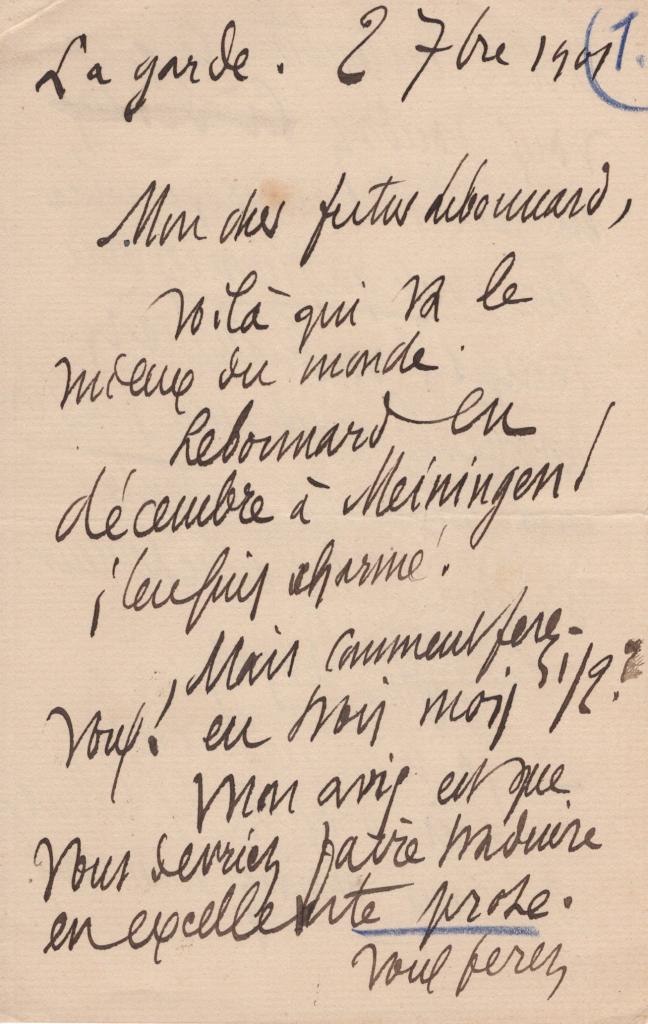 La garde. 2 7bre 1901 1.
Mon cher futur Lebonnard,
Voilà qui va le
mieux du monde.
Lebonnard en
décembre à Meiningen !
j'en suis charmé.
Mais comment ferez-
vous ! en trois mois 1/2 ?
Mon avis est que
vous devriez faire traduire
en excellente prose.
Vous ferez